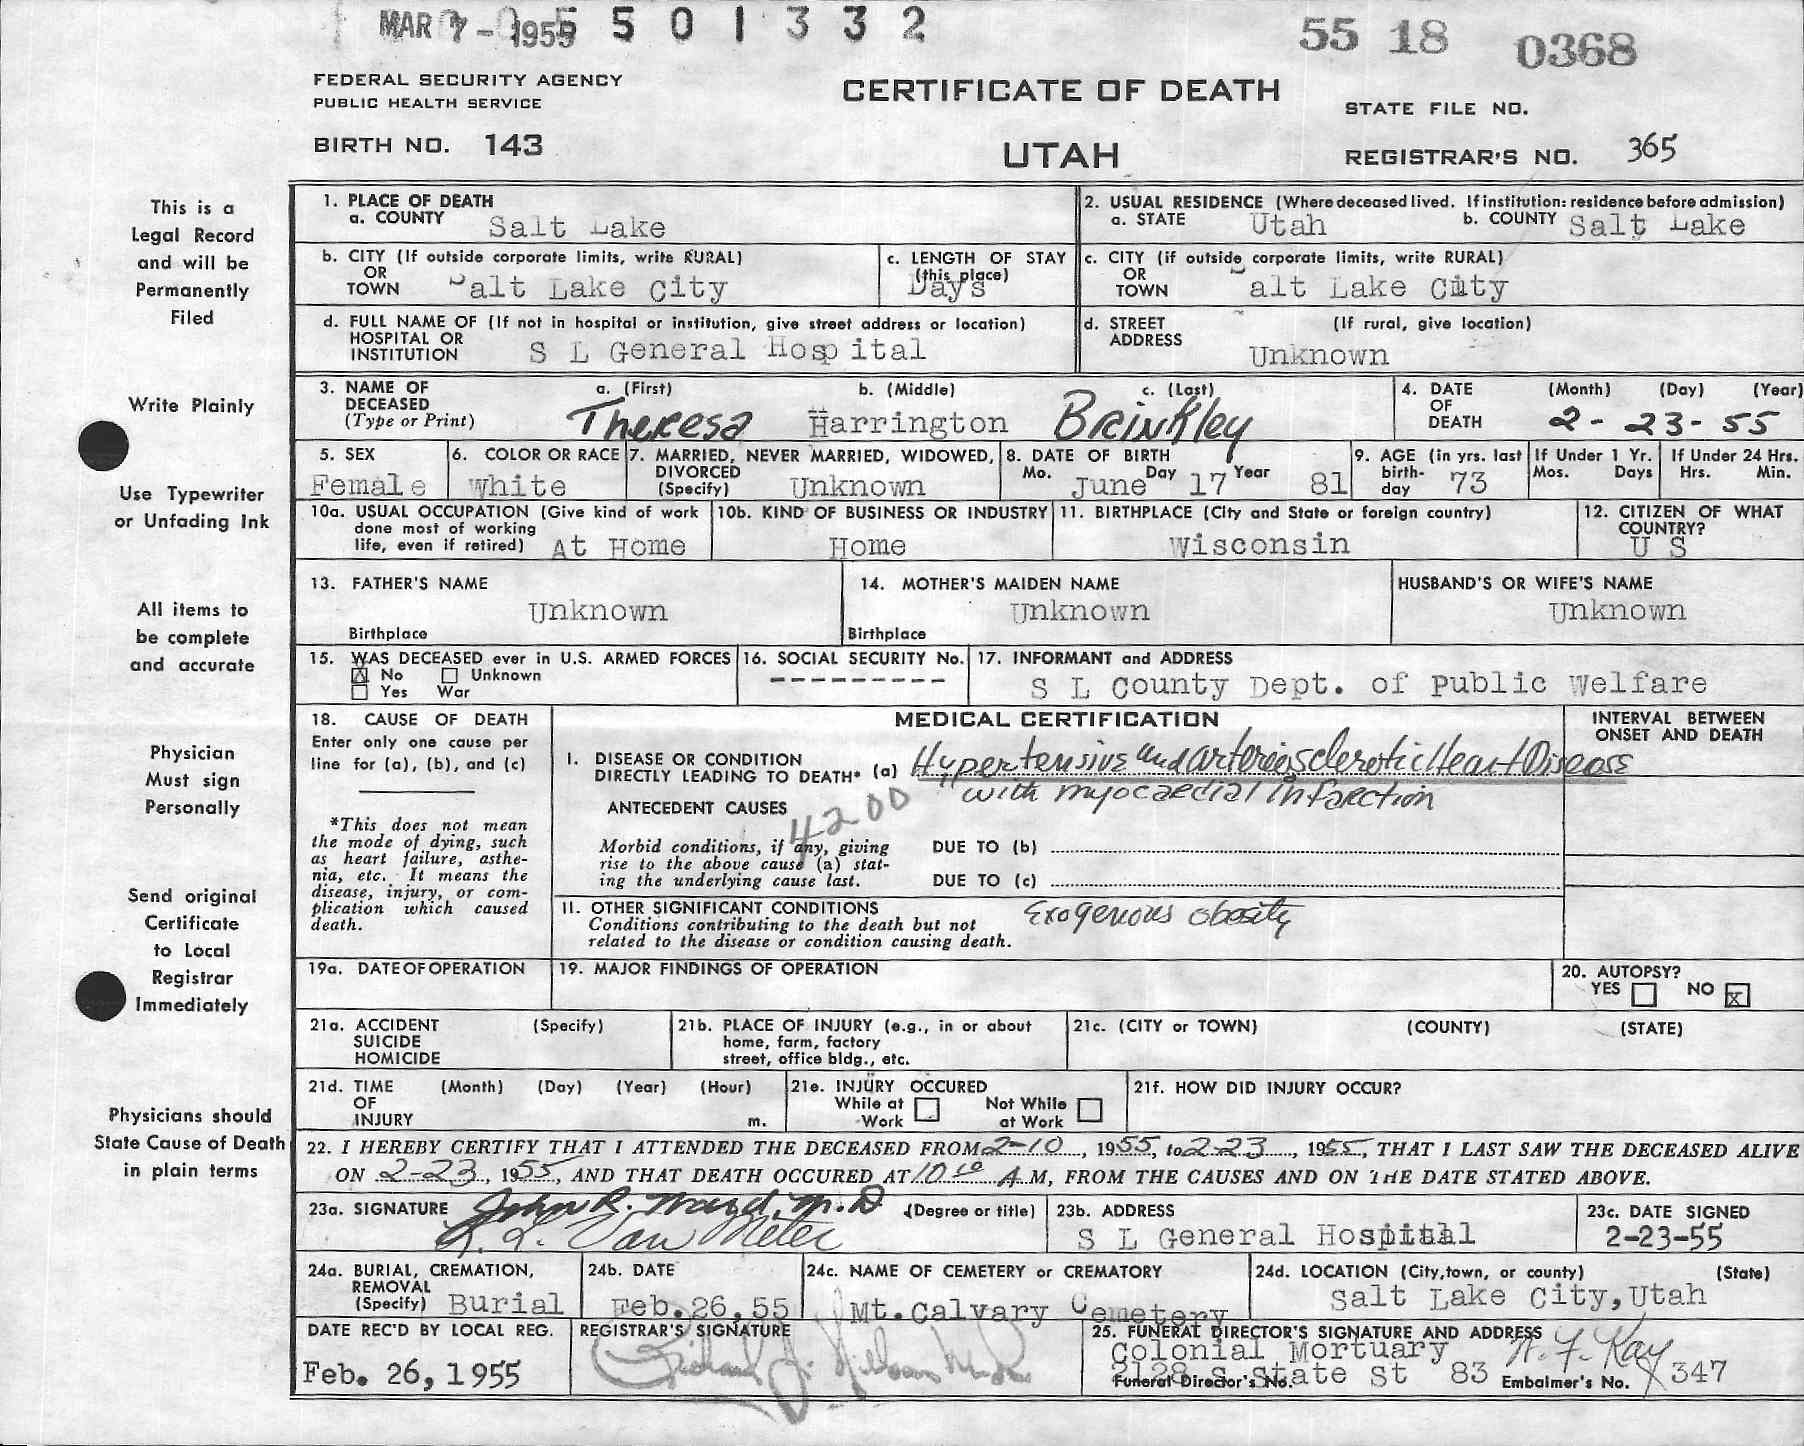 MAR 7 - 1955 5 5 0 1 3 3 2
55 18 0368
FEDERAL SECURITY AGENCY
PUBLIC HEALTH SERVICE
CERTIFICATE OF DEATH
STATE FILE NO.
BIRTH NO. 143
UTAH
REGISTRAR'S NO. 365
This is a
Legal Record
and will be
Permanently
Filed
Write Plainly
Use Typewriter
or Unfading Ink
All items to
be complete
and accurate
Physician
Must sign
Personally
Send original
Certificate
to Local
Registrar
Immediately
Physicians should
State Cause of Death
in plain terms
1. PLACE OF DEATH
a. COUNTY Salt Lake
2. USUAL RESIDENCE (Where deceased lived. If institution: residence before admission)
a. STATE Utah b. COUNTY Salt Lake
b. CITY (If outside corporate limits, write RURAL)
OR
TOWN Salt Lake City
c. LENGTH OF STAY
(this place)
Days
c. CITY (if outside corporate limits, write RURAL)
OR
TOWN alt Lake City
d. FULL NAME OF (If not in hospital or institution, give street address or location)
HOSPITAL OR
INSTITUTION S L General Hospital
d. STREET (If rural, give location)
ADDRESS
Unknown
3. NAME OF a. (First) b. (Middle) c. (Last)
DECEASED
(Type or Print) Theresa Harrington Brinkley
4. DATE (Month) (Day) (Year)
OF
DEATH 2 - 23 - 55
5. SEX
Female
6. COLOR OR RACE
White
7. MARRIED, NEVER MARRIED, WIDOWED,
DIVORCED
(Specify) Unknown
8. DATE OF BIRTH
Mo. June Day 17 Year 81
9. AGE (in yrs. last
birth-
day 73
If Under 1 Yr.
Mos. Days
If Under 24 Hrs.
Hrs. Min.
10a. USUAL OCCUPATION (Give kind of work
done most of working
life, even if retired) At Home
10b. KIND OF BUSINESS OR INDUSTRY
Home
11. BIRTHPLACE (City and State or foreign country)
Wisconsin
12. CITIZEN OF WHAT
COUNTRY?
U S
13. FATHER'S NAME
Unknown
Birthplace
14. MOTHER'S MAIDEN NAME
Unknown
Birthplace
HUSBAND'S OR WIFE'S NAME
Unknown
15. WAS DECEASED ever in U.S. ARMED FORCES
X No Unknown
Yes War
16. SOCIAL SECURITY No.
---------
17. INFORMANT and ADDRESS
S L County Dept. of Public Welfare
18. CAUSE OF DEATH
Enter only one cause per
line for (a), (b), and (c)
*This does not mean
the mode of dying, such
as heart failure, asthe-
nia, etc. It means the
disease, injury, or com-
plication which caused
death.
MEDICAL CERTIFICATION
INTERVAL BETWEEN
ONSET AND DEATH
I. DISEASE OR CONDITION
DIRECTLY LEADING TO DEATH* (a) Hypertensive and arteriosclerotic Heart Disease
with myocardial infarction
ANTECEDENT CAUSES
4200
Morbid conditions, if any, giving
rise to the above cause (a) stat-
ing the underlying cause last.
DUE TO (b)
DUE TO (c)
II. OTHER SIGNIFICANT CONDITIONS
Conditions contributing to the death but not
related to the disease or condition causing death.
Exogenous obesity
19a. DATE OF OPERATION
19. MAJOR FINDINGS OF OPERATION
20. AUTOPSY?
YES NO X
21a. ACCIDENT (Specify)
SUICIDE
HOMICIDE
21b. PLACE OF INJURY (e.g., in or about
home, farm, factory
street, office bldg., etc.
21c. (CITY or TOWN) (COUNTY) (STATE)
21d. TIME (Month) (Day) (Year) (Hour)
OF
INJURY m.
21e. INJURY OCCURED
While at Not While
Work at Work
21f. HOW DID INJURY OCCUR?
22. I HEREBY CERTIFY THAT I ATTENDED THE DECEASED FROM 2-10, 1955, to 2-23, 1955, THAT I LAST SAW THE DECEASED ALIVE
ON 2-23, 1955, AND THAT DEATH OCCURED AT 10 10 A M, FROM THE CAUSES AND ON THE DATE STATED ABOVE.
23a. SIGNATURE John R. Ward, M.D. (Degree or title)
L. L. Van Meter
23b. ADDRESS
S L General Hospital
23c. DATE SIGNED
2-23-55
24a. BURIAL, CREMATION,
REMOVAL
(Specify) Burial
24b. DATE
Feb.26,55
24c. NAME OF CEMETERY or CREMATORY
Mt.Calvary Cemetery
24d. LOCATION (City,town, or county) (State)
Salt Lake City,Utah
DATE REC'D BY LOCAL REG.
Feb. 26, 1955
REGISTRAR'S SIGNATURE
25. FUNERAL DIRECTOR'S SIGNATURE AND ADDRESS
Colonial Mortuary W. F. Kay
2128 S State St 83 347
Funeral Director's No. Embalmer's No.